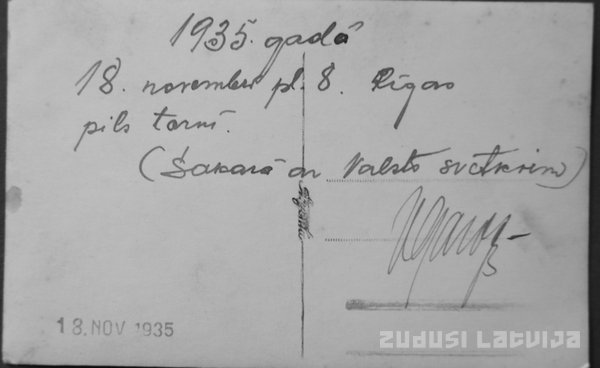 1935. gadā
18. novembrī pl. 8. Rīgas
pils tornī.
(Sakarā ar Valsts svētkiem)
18. NOV 1935
ZUDUSI LATVIJA